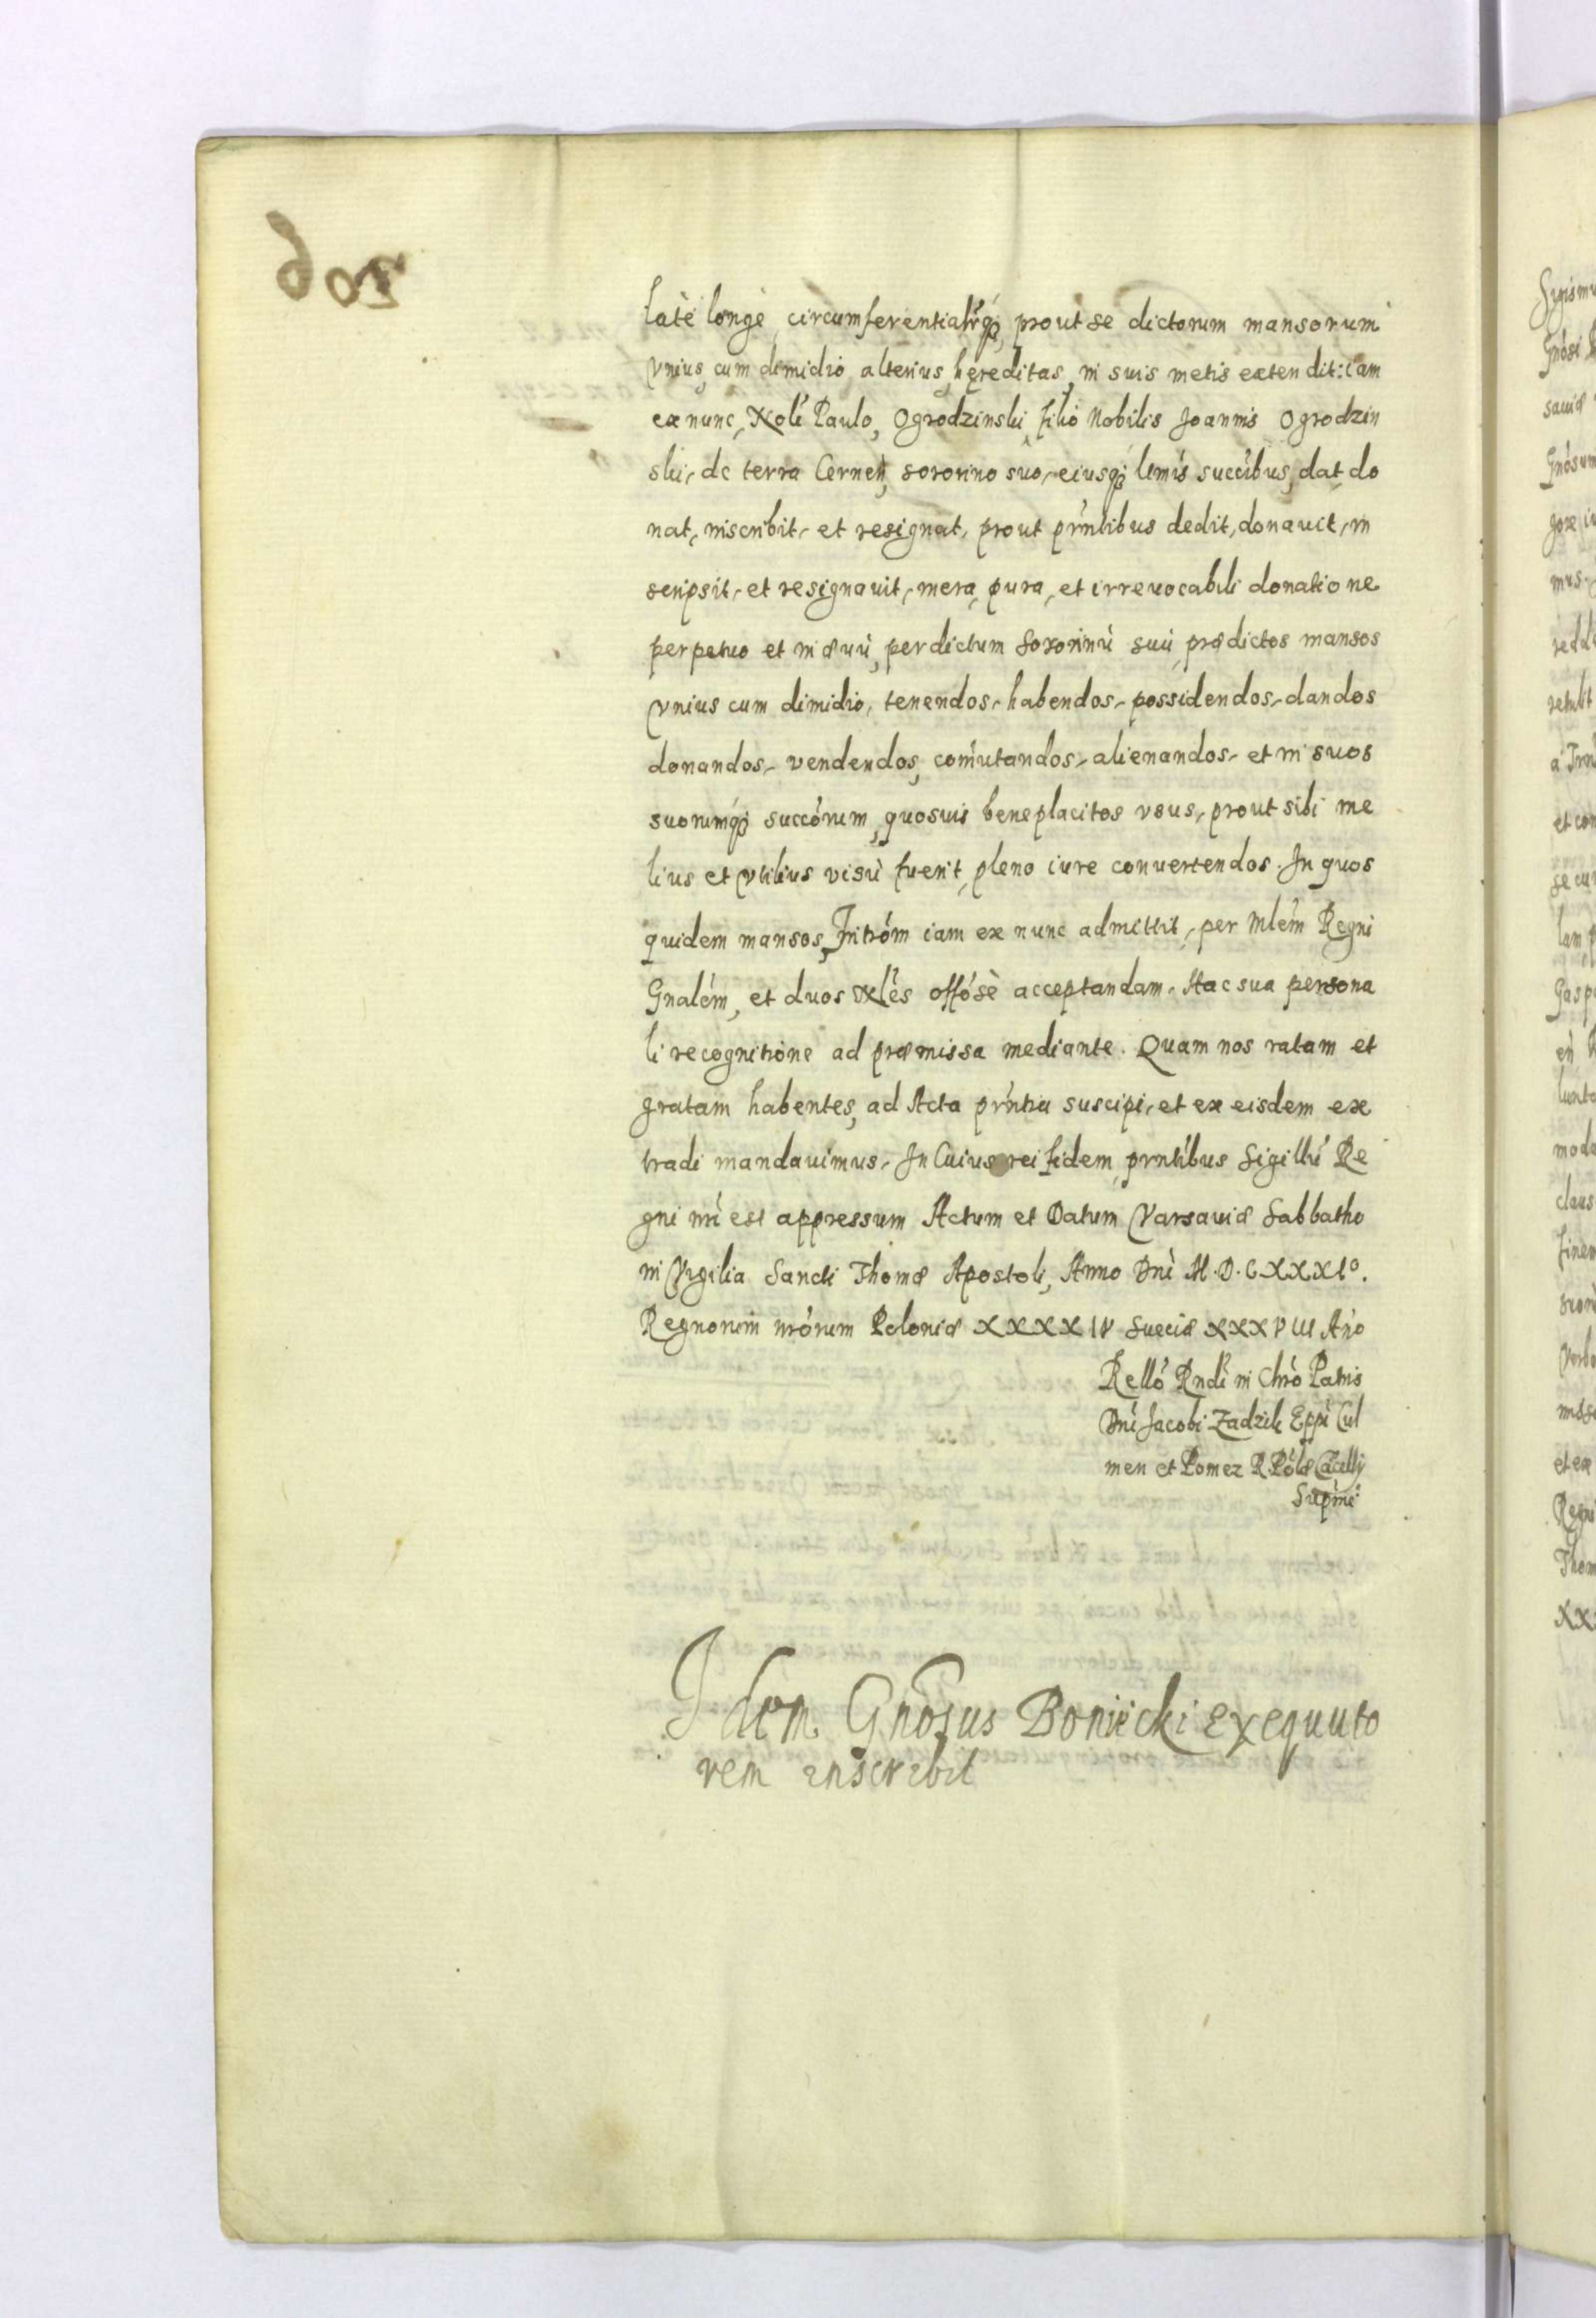 latè longè circumferentialrq́ȝ, prout se dictorum mansorum
vnius, cum dimidio alterius, hęreditas, in suis metis extendit: iam
ex nunc, Nolí Paulo, Ogrodzinski filio Nobilis Joannis Ogrodzin
ski, de terra Cernen, sororino suo, eiusqȝ ltmís succíbus, dat, do
nat, inscribit, et resignat, prout prńtibus dedit, donauit, in
scripsit, et resignauit, mera, pura, et irreuocabili donatione
perpetuo et in æuū, per dictum sororinū suū, prædictos mansos
vnius cum dimidio, tenendos, habendos, possidendos, dandos
donandos, vendendos, com̄utandos, alienandos, et in suos
suorumq́ȝ succórum, quosuis beneplacitos vsus, prout sibi me
lius et vtilius visū fuerit, pleno iure conuertendos. In quos
quidem mansos, Intróm iam ex nunc admittit, per Mlém Regni
Gnalém, et duos Nlés offósè acceptandam. Hac sua persona
li recognitione ad præmissa mediante. Quam nos ratam et
gratam habentes, ad Acta prńtia suscipi, et ex eisdem ex
tradi mandauimus. In Cuius rei fidem, prntíbus Sigillū Re
gni nrí est appressum Actum et Datum Varsauiæ Sabbatho
in Vigilia Sancti Thomæ Apostoli, Anno Dnì M.D.CXXXIº.
Regnorum nrórum Poloniæ XXXXIV Sueciæ XXXVIII Año
Relló Rndí in Chró Patris
Dní Jacobi Zadzik Eppí Cul
men et Pomez R. Pólæ Cácellij
Supmi
Idem Gnosus Boniecki exequuto
rem inscribit